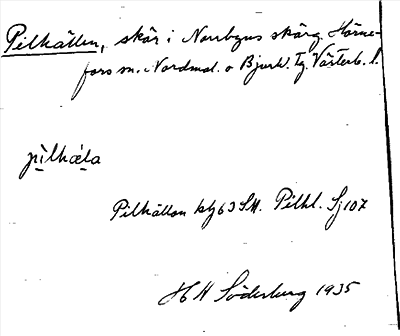 Pilkällen, skär i Norrbyns skärg. Hörne-
fors sn. Nordmal. o Bjurh. Tg. Västerb. l.
pìlkǽla
Pilkällan kby63 SK. Pilkl. Sj107
H H Söderburg 1935